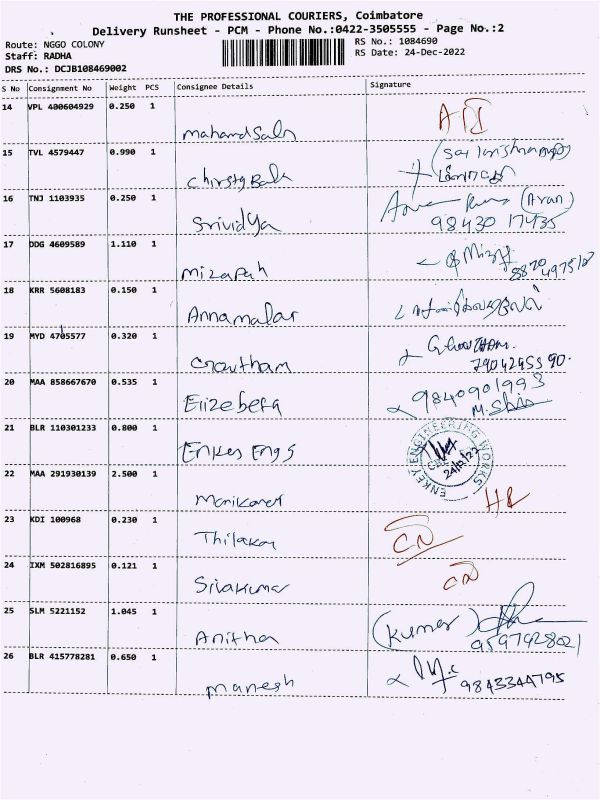 THE PROFESSIONAL COURIERS, Coimbatore
Delivery Runsheet - PCM - Phone No.:0422-3505555 - Page No.:2
Route: NGGO COLONY
Staff: RADHA
DRS No.: DCJB108469002
RS No.: 1084690
RS Date: 24-Dec-2022
S No Consignment No Weight PCS Consignee Details Signature
14 VPL 400604929 0.250 1
15 TVL 4579447 0.990 1
16 TNJ 1103935 0.250 1 Srividya (Aran)
98430 17435
17 DDG 4609589 1.110 1 Mizapah
18 KRR 5608183 0.150 1 Annamalar
19 MYD 4705577 0.320 1 Croutham
7904245590.
20 MAA 858667670 0.535 1 Elizeberg 9840901993
21 BLR 110301233 0.800 1 Enkey Engg
ENKEY ENGINEERING WORKS
24/12/22
22 MAA 291930139 2.500 1 HR
23 KDI 100968 0.230 1 Thilakar
24 IXM 502816895 0.121 1 Sivakumar
25 SLM 5221152 1.045 1 Anitha (Kumar)
9597928021
26 BLR 415778281 0.650 1 Manesh
9843344795